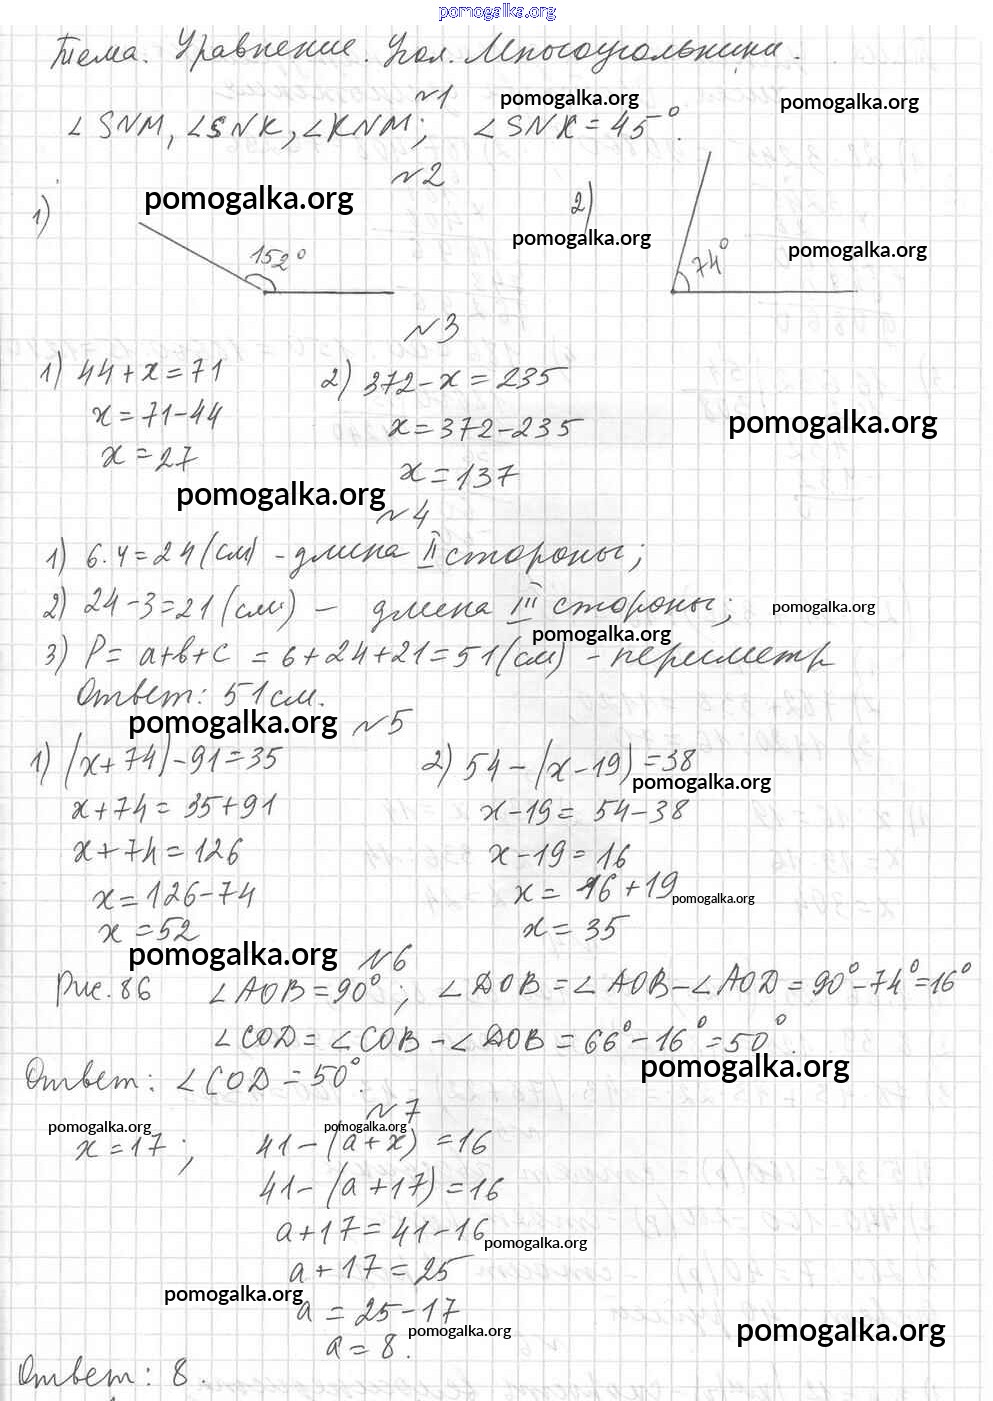 pomogalka.org
Тема. Уравнение. Угол. Многоугольники.
№1
pomogalka.org
pomogalka.org
∠SNM, ∠SNK, ∠KNM; ∠SNK = 45°.
№2
pomogalka.org
1) 152°
2) 74°
pomogalka.org
pomogalka.org
№3
1) 44 + x = 71
x = 71 - 44
x = 27
2) 372 - x = 235
x = 372 - 235
x = 137
pomogalka.org
pomogalka.org
№4
1) 6·4 = 24 (см) - длина II стороны;
2) 24 - 3 = 21 (см) - длина III стороны;
pomogalka.org
pomogalka.org
3) P = a + b + c = 6 + 24 + 21 = 51 (см) - периметр
Ответ: 51 см.
pomogalka.org
№5
1) (x + 74) - 91 = 35
x + 74 = 35 + 91
x + 74 = 126
x = 126 - 74
x = 52
2) 54 - (x - 19) = 38
pomogalka.org
x - 19 = 54 - 38
x - 19 = 16
x = 16 + 19
pomogalka.org
x = 35
pomogalka.org
№6
Рис. 86 ∠AOB = 90°; ∠DOB = ∠AOB - ∠AOD = 90° - 74° = 16°
∠COD = ∠COB - ∠DOB = 66° - 16° = 50°.
pomogalka.org
Ответ: ∠COD = 50°.
№7
pomogalka.org
pomogalka.org
x = 17; 41 - (a + x) = 16
41 - (a + 17) = 16
a + 17 = 41 - 16
pomogalka.org
a + 17 = 25
pomogalka.org
a = 25 - 17
pomogalka.org
pomogalka.org
a = 8.
Ответ: 8.